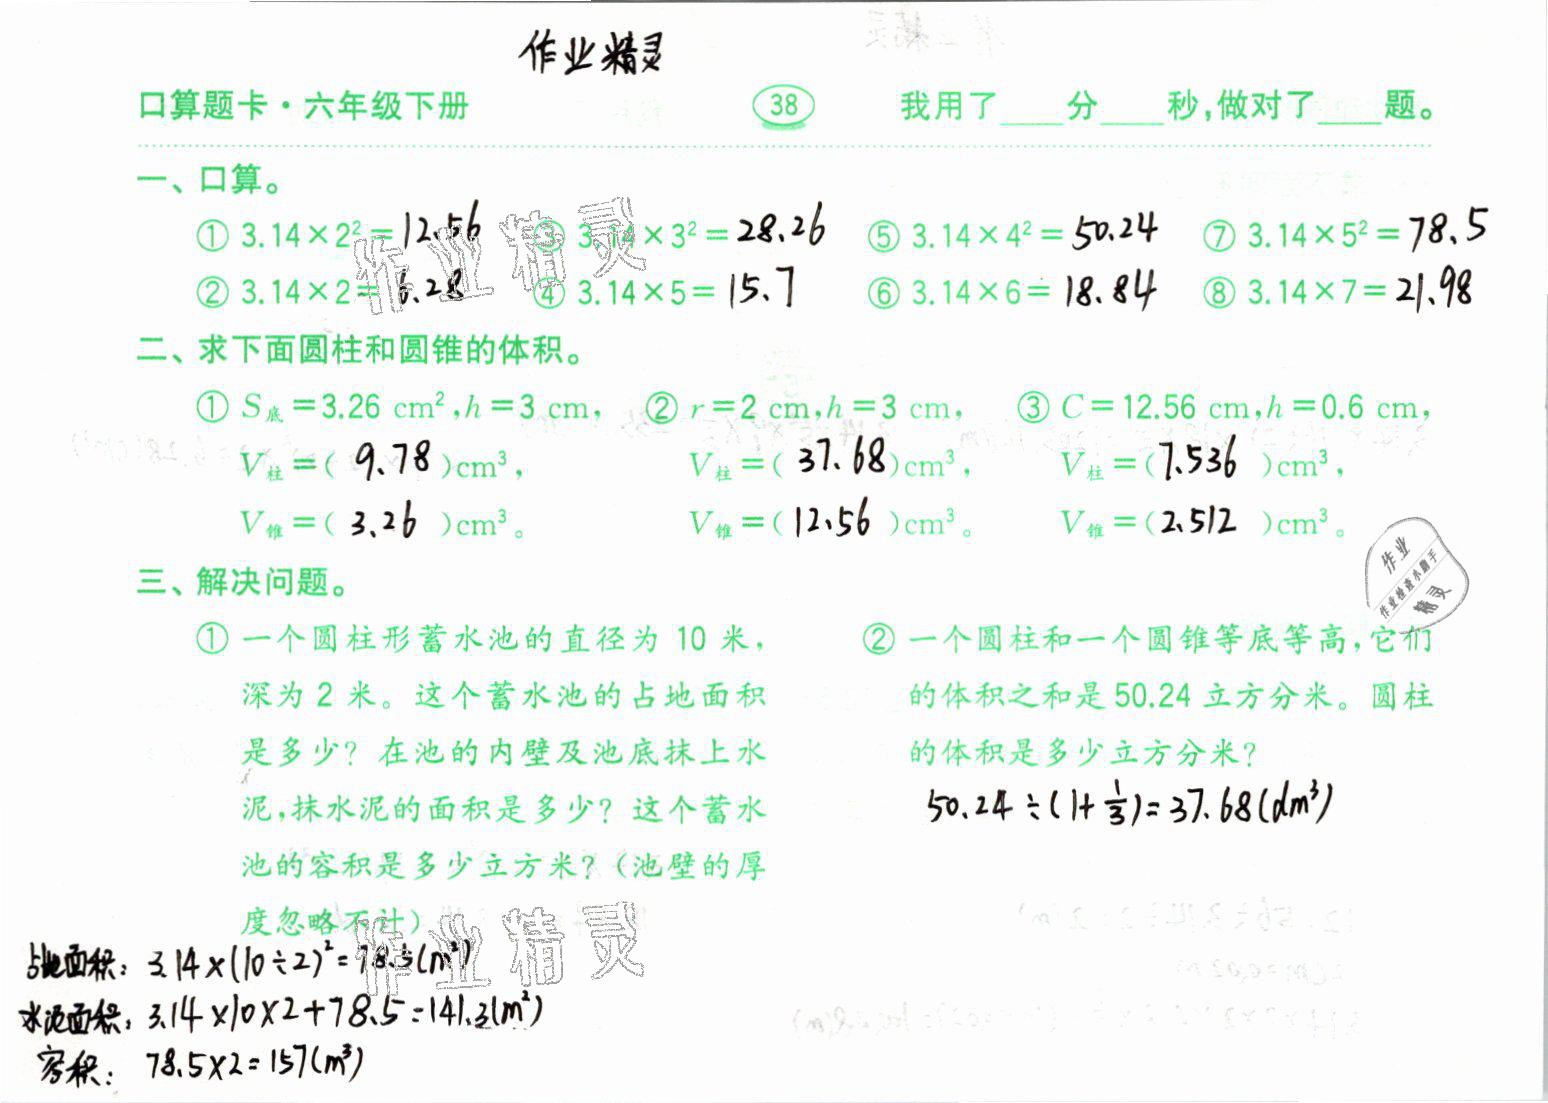 作业精灵
口算题卡·六年级下册 38 我用了____分____秒,做对了____题。
一、口算。
① 3.14×2²=12.56 ③ 3.14×3²=28.26 ⑤ 3.14×4²=50.24 ⑦ 3.14×5²=78.5
② 3.14×2=6.28 ④ 3.14×5=15.7 ⑥ 3.14×6=18.84 ⑧ 3.14×7=21.98
作业精灵
二、求下面圆柱和圆锥的体积。
① S底=3.26 cm²,h=3 cm, ② r=2 cm,h=3 cm, ③ C=12.56 cm,h=0.6 cm,
V柱=( 9.78 )cm³, V柱=( 37.68 )cm³, V柱=( 7.536 )cm³,
V锥=( 3.26 )cm³。 V锥=( 12.56 )cm³。 V锥=( 2.512 )cm³。
作业
作业检查小助手
精灵
三、解决问题。
① 一个圆柱形蓄水池的直径为 10 米,
深为 2 米。这个蓄水池的占地面积
是多少? 在池的内壁及池底抹上水
泥,抹水泥的面积是多少? 这个蓄水
池的容积是多少立方米? (池壁的厚
度忽略不计)
作业精灵
占地面积: 3.14×(10÷2)²=78.5(m²)
水泥面积: 3.14×10×2+78.5=141.3(m²)
容积: 78.5×2=157(m³)
② 一个圆柱和一个圆锥等底等高,它们
的体积之和是 50.24 立方分米。圆柱
的体积是多少立方分米?
50.24÷(1+1/3)=37.68(dm³)